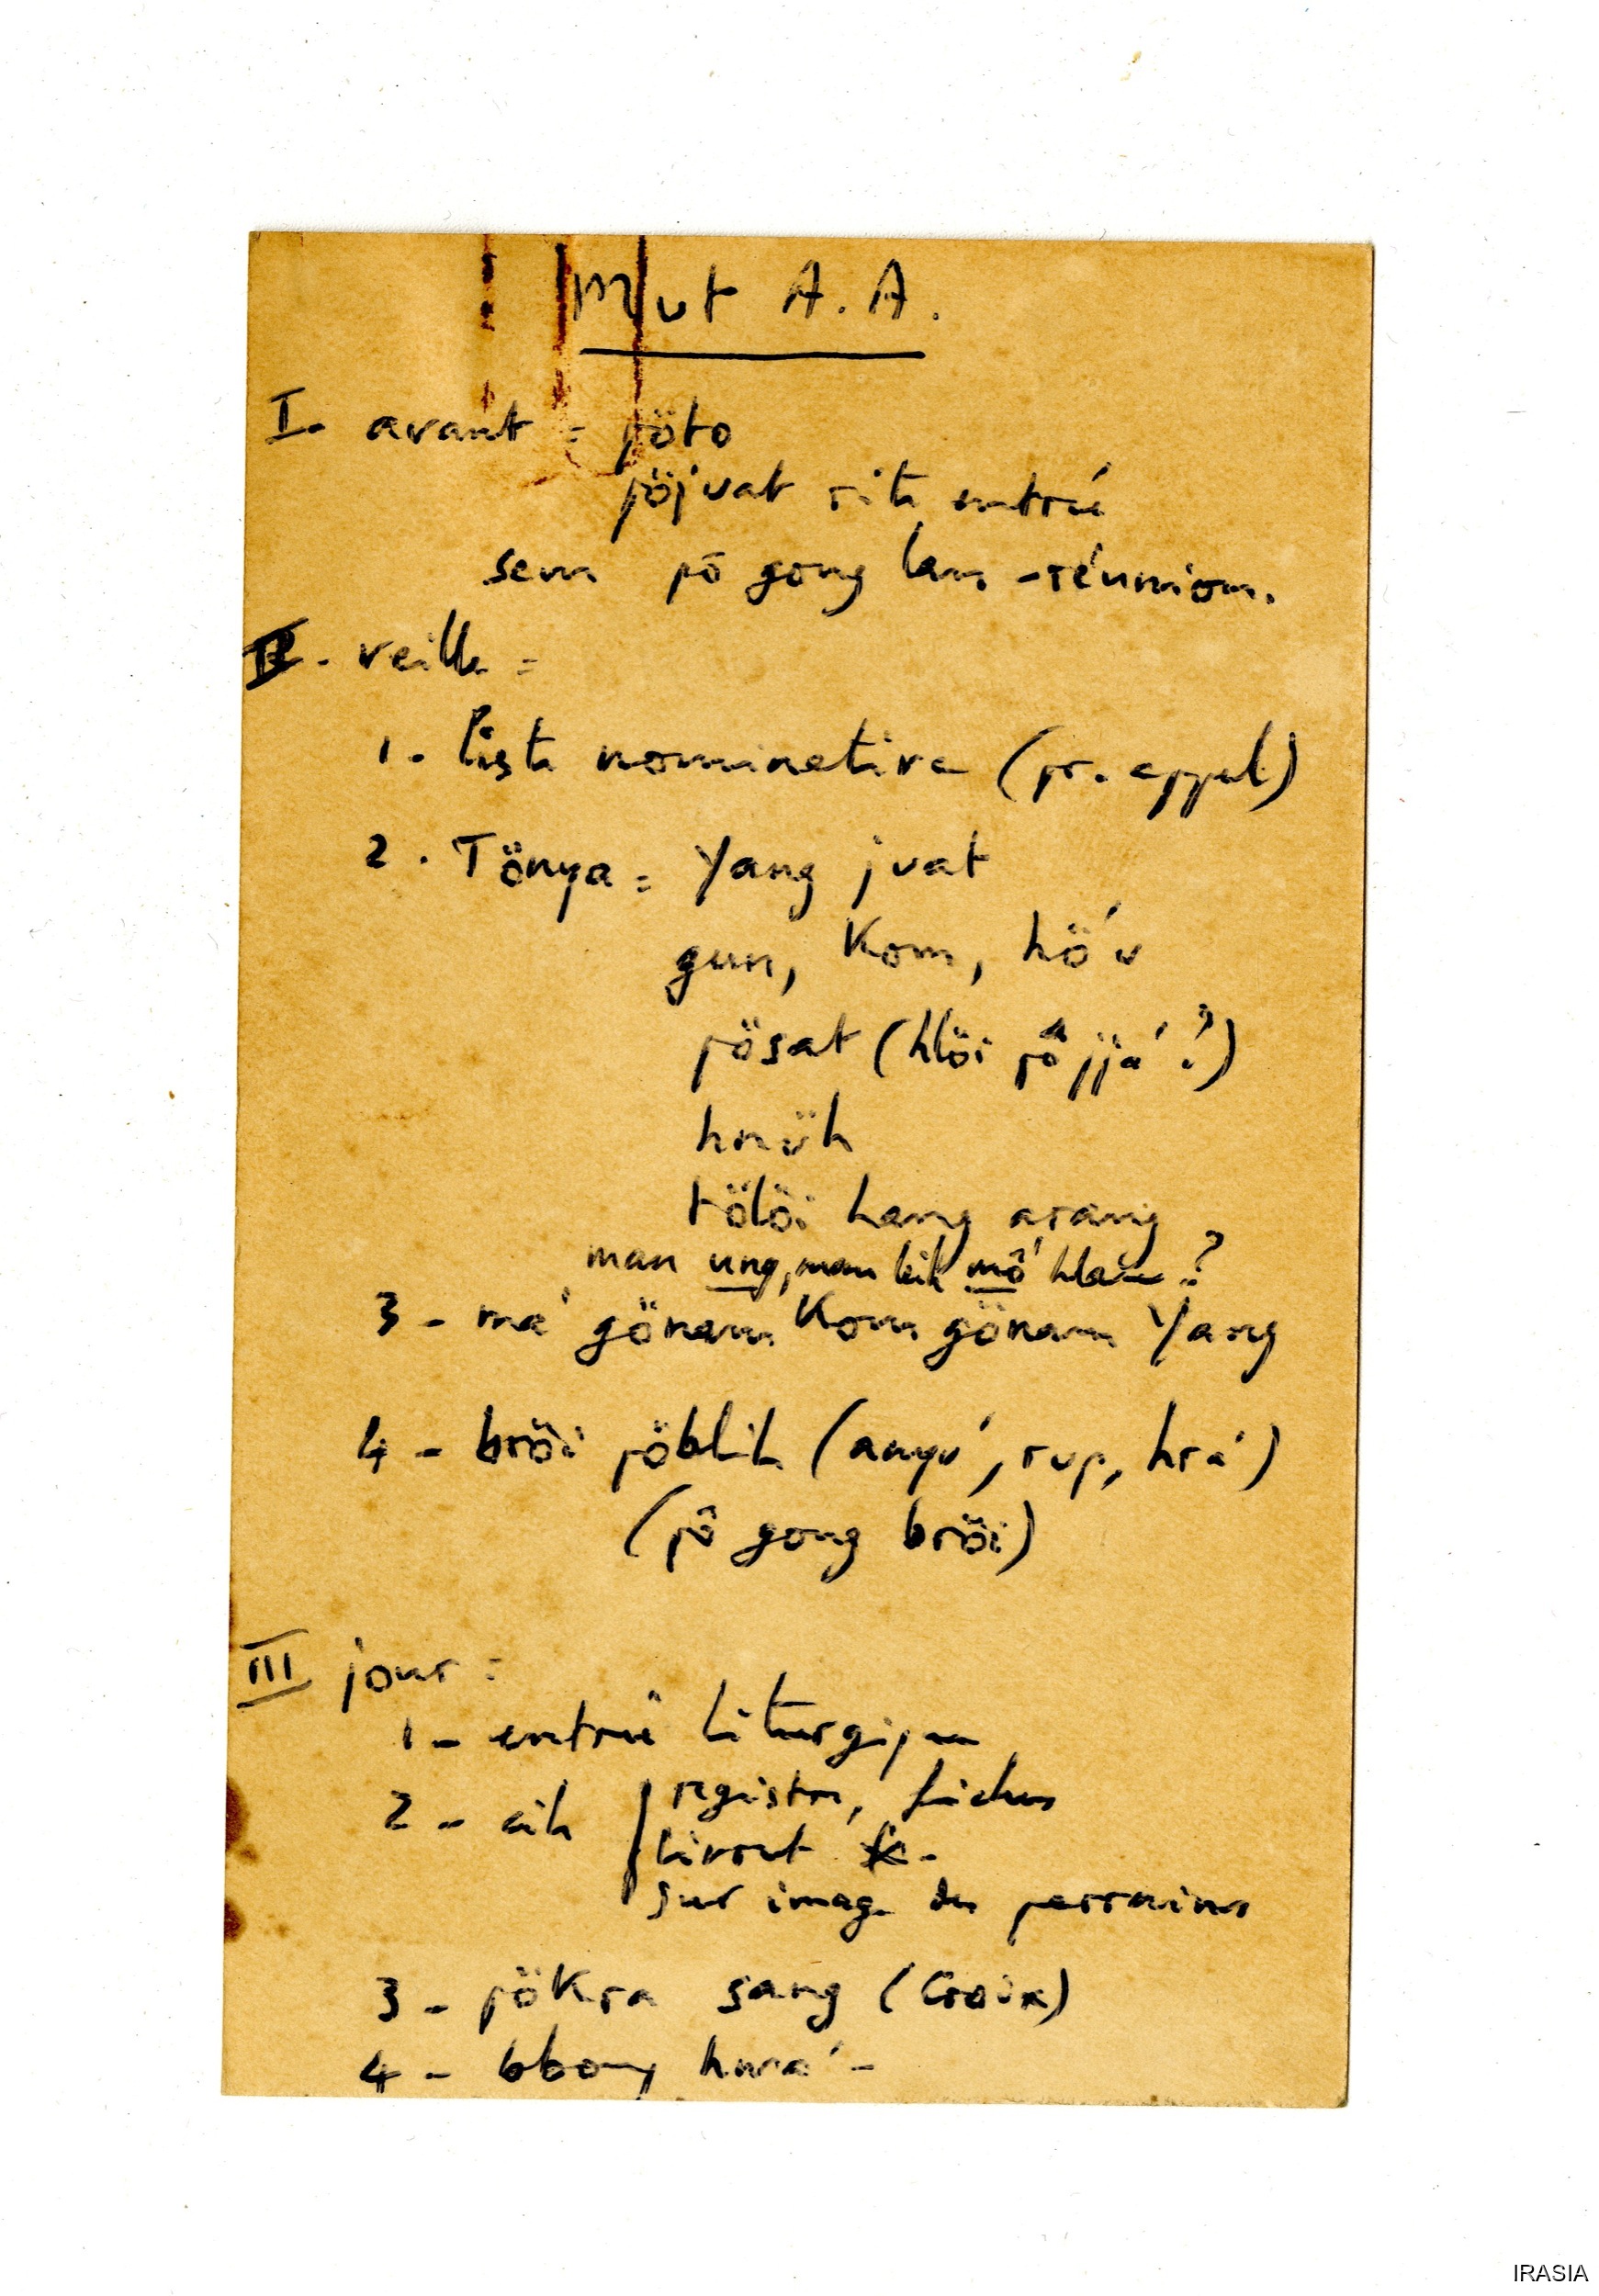 Mut A.A.
I- avant = pöto
pöjuat rite entrée
sem pô gong lam - réunion.
II. veille =
1. liste nominative (pr. appel)
2. Tönya = Yang juat
gun, Kom, hö'u
pösat (hlöi pô jjá ?)
hnüh
tölöi hang arang
man ung, man kih mô'
3 - má gönam Kom gönam Yang
4 - bröi pöblih (anyú, rup, hrá)
(pô gong bröi)
III jour =
1 - entrée liturgique
2 - cih | registre, fiches
livret
sur image des parrains
3 - pökra sang (Croix)
4 - bbong huá -
IRASIA